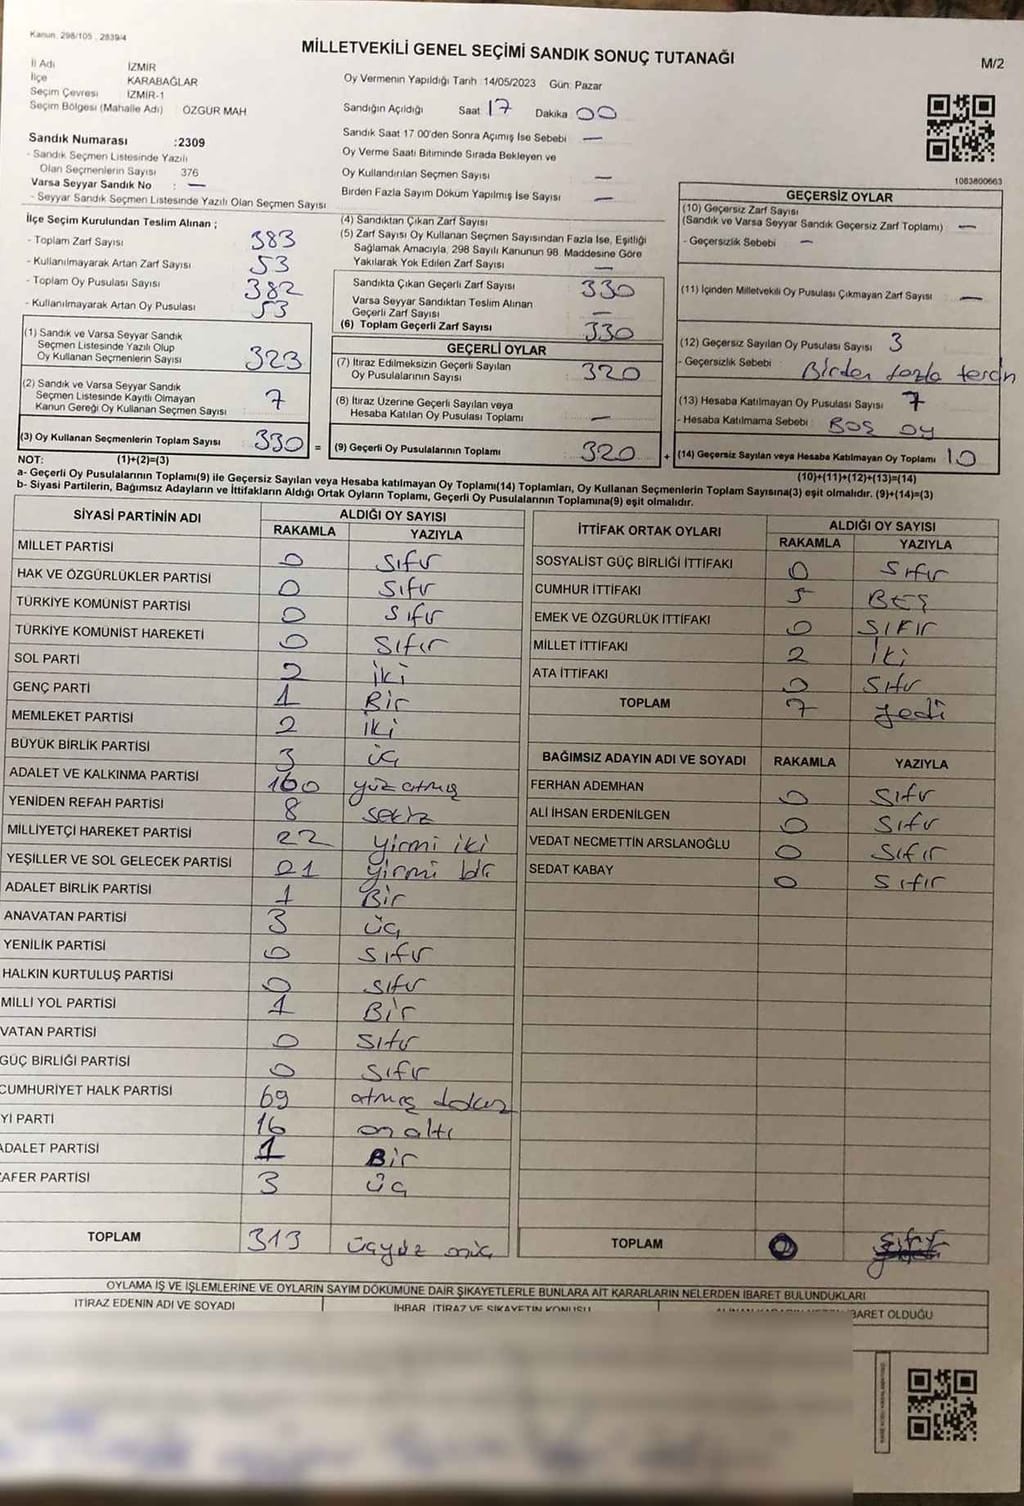 Kanun: 298/105 , 2839/4
MİLLETVEKİLİ GENEL SEÇİMİ SANDIK SONUÇ TUTANAĞI
M/2
İl Adı İZMİR
İlçe KARABAĞLAR
Seçim Çevresi İZMİR-1
Seçim Bölgesi (Mahalle Adı) ÖZGÜR MAH
Sandık Numarası :2309
- Sandık Seçmen Listesinde Yazılı
Olan Seçmenlerin Sayısı 376
Varsa Seyyar Sandık No : —
- Seyyar Sandık Seçmen Listesinde Yazılı Olan Seçmen Sayısı
Oy Vermenin Yapıldığı Tarih 14/05/2023 Gün: Pazar
Sandığın Açıldığı Saat 17 Dakika 00
Sandık Saat 17 00'den Sonra Açılmış İse Sebebi —
Oy Verme Saati Bitiminde Sırada Bekleyen ve
Oy Kullandırılan Seçmen Sayısı —
Birden Fazla Sayım Döküm Yapılmış İse Sayısı —
1083800663
İlçe Seçim Kurulundan Teslim Alınan ;
- Toplam Zarf Sayısı 383
- Kullanılmayarak Artan Zarf Sayısı 53
- Toplam Oy Pusulası Sayısı 382
- Kullanılmayarak Artan Oy Pusulası 53
(1) Sandık ve Varsa Seyyar Sandık
Seçmen Listesinde Yazılı Olup
Oy Kullanan Seçmenlerin Sayısı 323
(2) Sandık ve Varsa Seyyar Sandık
Seçmen Listesinde Kayıtlı Olmayan
Kanun Gereği Oy Kullanan Seçmen Sayısı 7
(3) Oy Kullanan Seçmenlerin Toplam Sayısı 330 =
(4) Sandıktan Çıkan Zarf Sayısı
(5) Zarf Sayısı Oy Kullanan Seçmen Sayısından Fazla İse, Eşitliği
Sağlamak Amacıyla, 298 Sayılı Kanunun 98. Maddesine Göre
Yakılarak Yok Edilen Zarf Sayısı —
Sandıkta Çıkan Geçerli Zarf Sayısı 330
Varsa Seyyar Sandıktan Teslim Alınan
Geçerli Zarf Sayısı —
(6) Toplam Geçerli Zarf Sayısı 330
GEÇERLİ OYLAR
(7) İtiraz Edilmeksizin Geçerli Sayılan
Oy Pusulalarının Sayısı 320
(8) İtiraz Üzerine Geçerli Sayılan veya
Hesaba Katılan Oy Pusulası Toplamı —
(9) Geçerli Oy Pusulalarının Toplamı 320 +
GEÇERSİZ OYLAR
(10) Geçersiz Zarf Sayısı
(Sandık ve Varsa Seyyar Sandık Geçersiz Zarf Toplamı) —
- Geçersizlik Sebebi —
(11) İçinden Milletvekili Oy Pusulası Çıkmayan Zarf Sayısı —
(12) Geçersiz Sayılan Oy Pusulası Sayısı 3
- Geçersizlik Sebebi Birden fazla tercih
(13) Hesaba Katılmayan Oy Pusulası Sayısı 7
- Hesaba Katılmama Sebebi BOŞ oy
(14) Geçersiz Sayılan veya Hesaba Katılmayan Oy Toplamı 10
NOT: (1)+(2)=(3) (10)+(11)+(12)+(13)=(14)
a- Geçerli Oy Pusulalarının Toplamı(9) ile Geçersiz Sayılan veya Hesaba katılmayan Oy Toplamı(14) Toplamları, Oy Kullanan Seçmenlerin Toplam Sayısına(3) eşit olmalıdır. (9)+(14)=(3)
b- Siyasi Partilerin, Bağımsız Adayların ve İttifakların Aldığı Ortak Oyların Toplamı, Geçerli Oy Pusulalarının Toplamına(9) eşit olmalıdır.
SİYASİ PARTİNİN ADI ALDIĞI OY SAYISI
RAKAMLA YAZIYLA
MİLLET PARTİSİ 0 Sıfır
HAK VE ÖZGÜRLÜKLER PARTİSİ 0 Sıfır
TÜRKİYE KOMÜNİST PARTİSİ 0 Sıfır
TÜRKİYE KOMÜNİST HAREKETİ 0 Sıfır
SOL PARTİ 2 iki
GENÇ PARTİ 1 Bir
MEMLEKET PARTİSİ 2 iki
BÜYÜK BİRLİK PARTİSİ 3 üç
ADALET VE KALKINMA PARTİSİ 160 yüz atmış
YENİDEN REFAH PARTİSİ 8 sekiz
MİLLİYETÇİ HAREKET PARTİSİ 22 yirmi iki
YEŞİLLER VE SOL GELECEK PARTİSİ 21 yirmi bir
ADALET BİRLİK PARTİSİ 1 Bir
ANAVATAN PARTİSİ 3 üç
YENİLİK PARTİSİ 0 Sıfır
HALKIN KURTULUŞ PARTİSİ 0 Sıfır
MİLLİ YOL PARTİSİ 1 Bir
VATAN PARTİSİ 0 Sıfır
GÜÇ BİRLİĞİ PARTİSİ 0 Sıfır
CUMHURİYET HALK PARTİSİ 69 atmış dokuz
Yİ PARTİ 16 on altı
ADALET PARTİSİ 1 Bir
ZAFER PARTİSİ 3 üç
TOPLAM 313 üçyüz onüç
İTTİFAK ORTAK OYLARI ALDIĞI OY SAYISI
RAKAMLA YAZIYLA
SOSYALİST GÜÇ BİRLİĞİ İTTİFAKI 0 Sıfır
CUMHUR İTTİFAKI 5 BEŞ
EMEK VE ÖZGÜRLÜK İTTİFAKI 0 SIFIR
MİLLET İTTİFAKI 2 iki
ATA İTTİFAKI 0 Sıfır
TOPLAM 7 yedi
BAĞIMSIZ ADAYIN ADI VE SOYADI RAKAMLA YAZIYLA
FERHAN ADEMHAN 0 Sıfır
ALİ İHSAN ERDENİLGEN 0 Sıfır
VEDAT NECMETTİN ARSLANOĞLU 0 Sıfır
SEDAT KABAY 0 Sıfır
TOPLAM 0 Sıfır
OYLAMA İŞ VE İŞLEMLERİNE VE OYLARIN SAYIM DÖKÜMÜNE DAİR ŞİKAYETLERLE BUNLARA AİT KARARLARIN NELERDEN İBARET BULUNDUKLARI
İTİRAZ EDENİN ADI VE SOYADI
İHBAR, İTİRAZ VE ŞİKAYETİN KONUSU
İBARET OLDUĞU